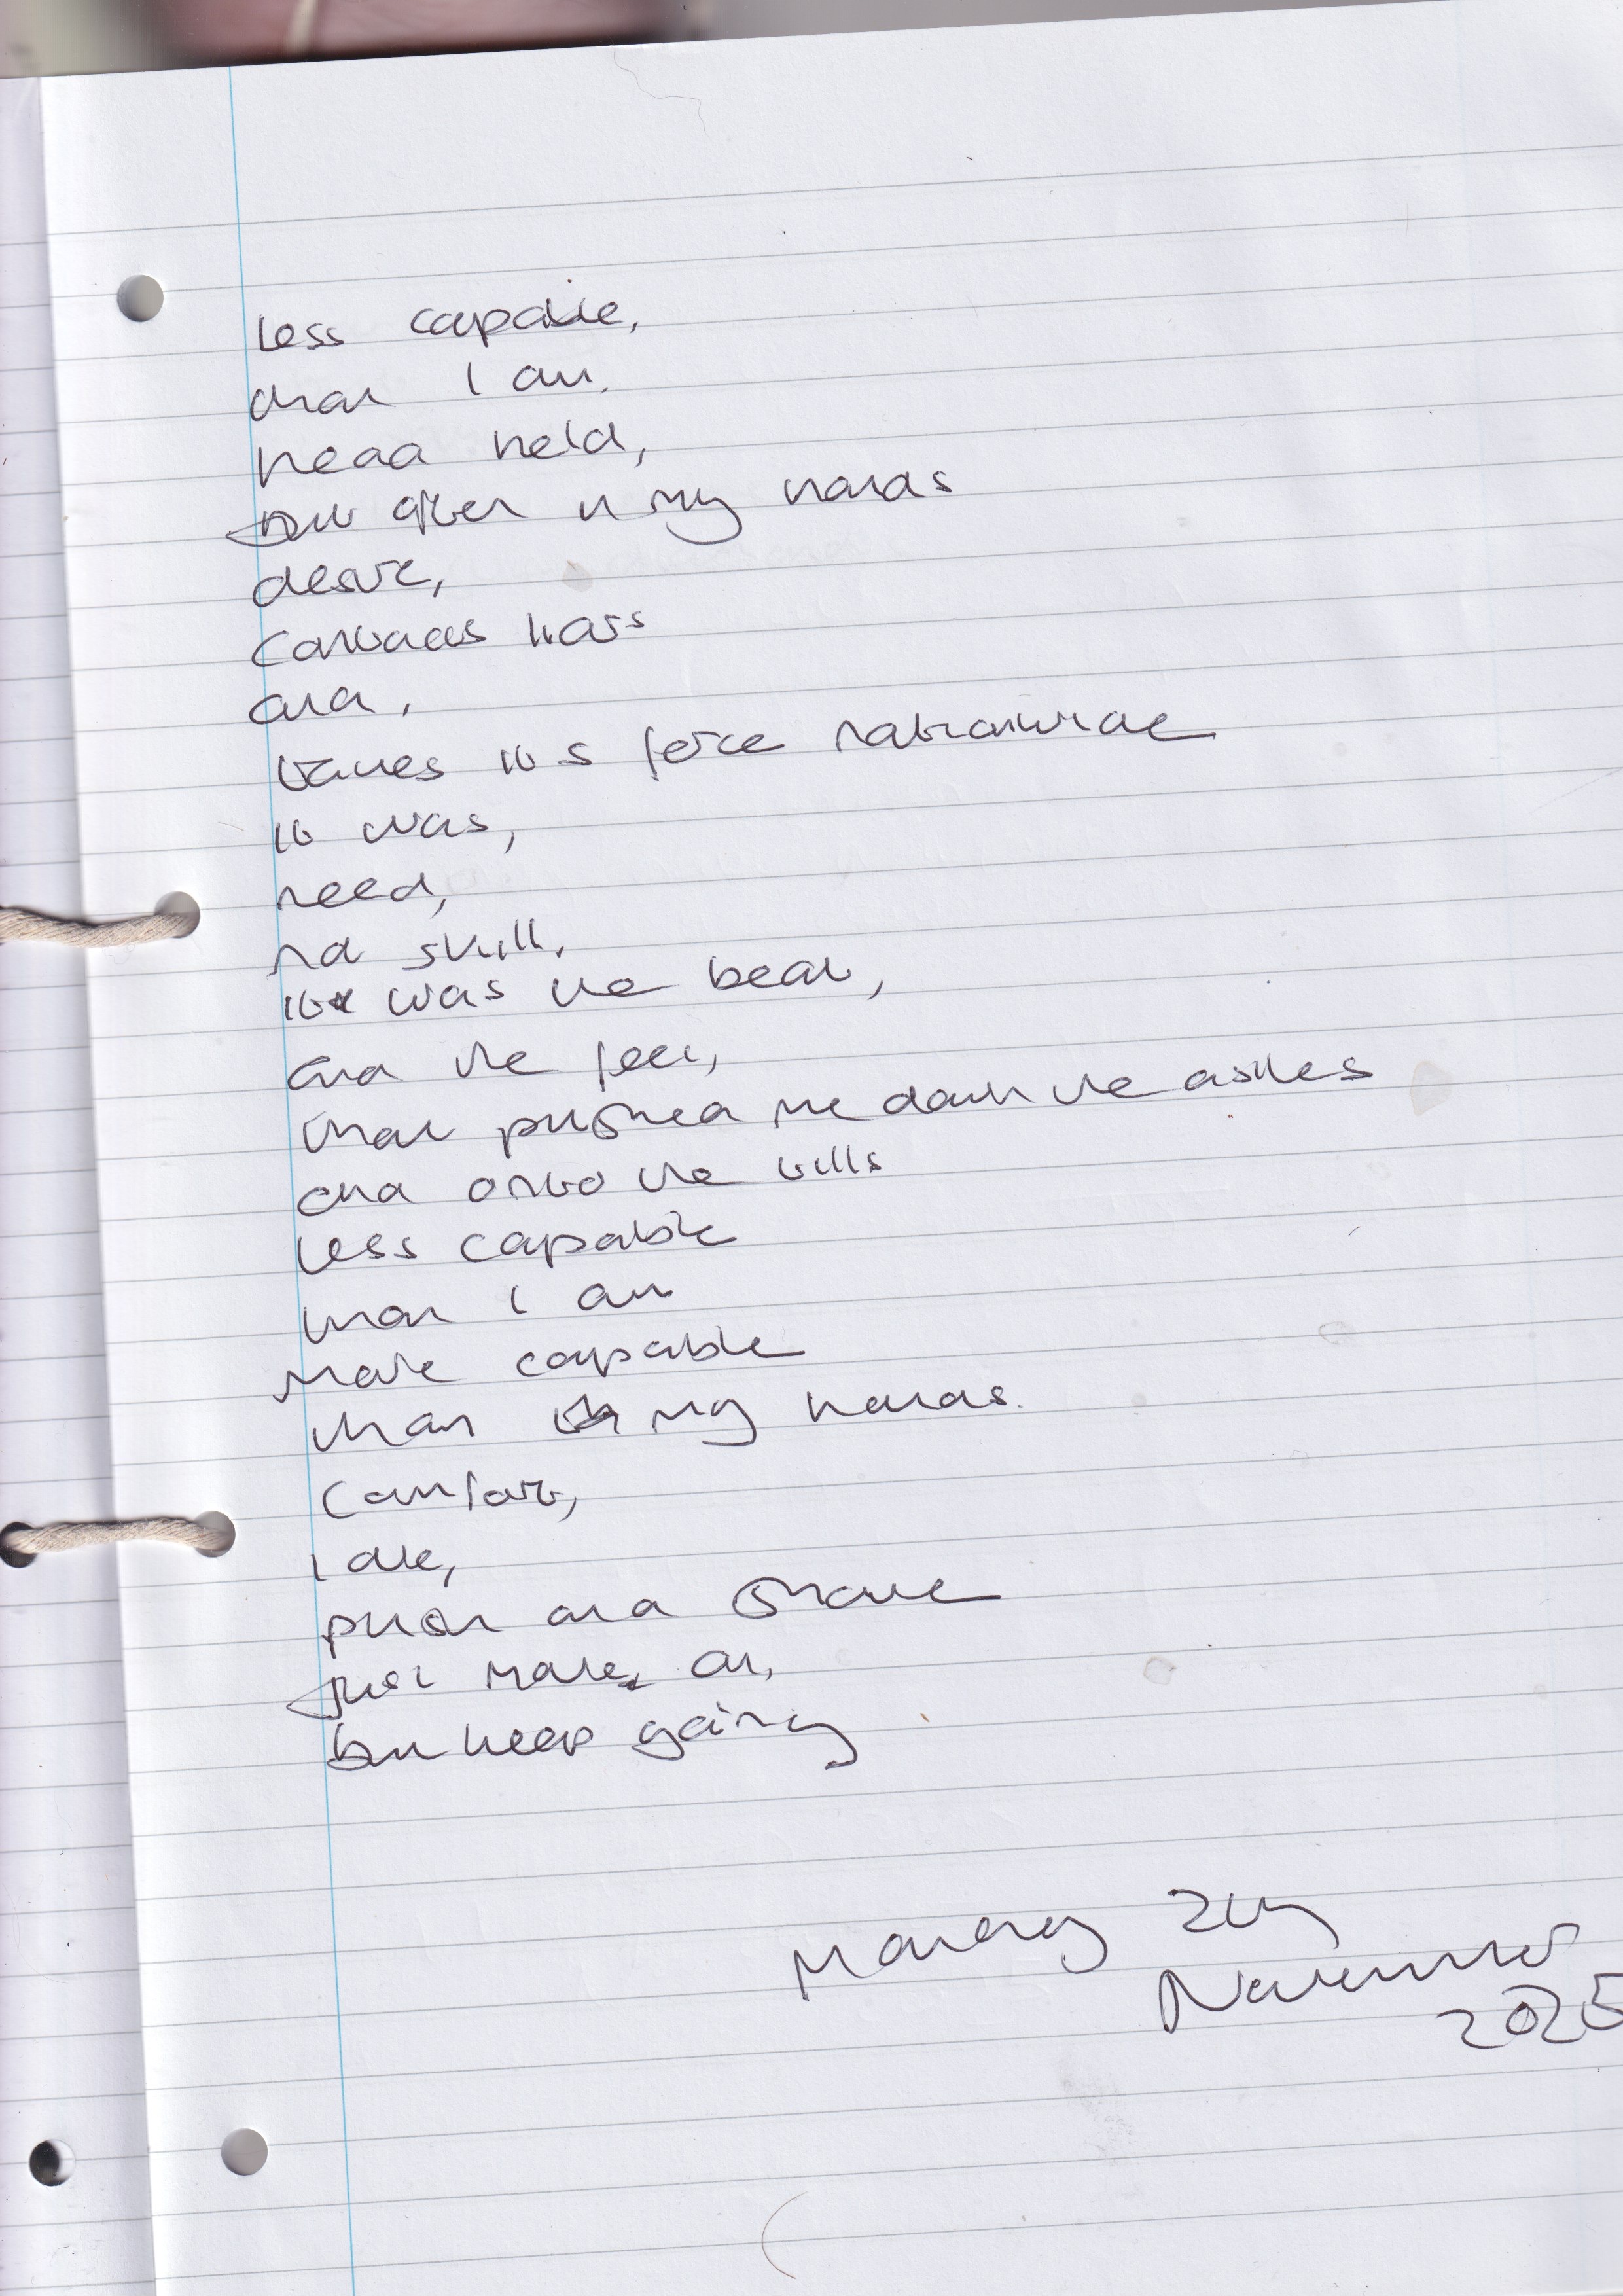 less capable,
than I am.
head held,
but often in my hands
desire,
contracts
and,
takes it's force nationwide
it was,
need,
not skill.
it was the beat,
and the feet,
that pushed me down the aisles
and onto the tills
less capable
than I am
more capable
than my hands.
comfort,
love,
push and shove
just move on,
but keep going
Monday
November
2025